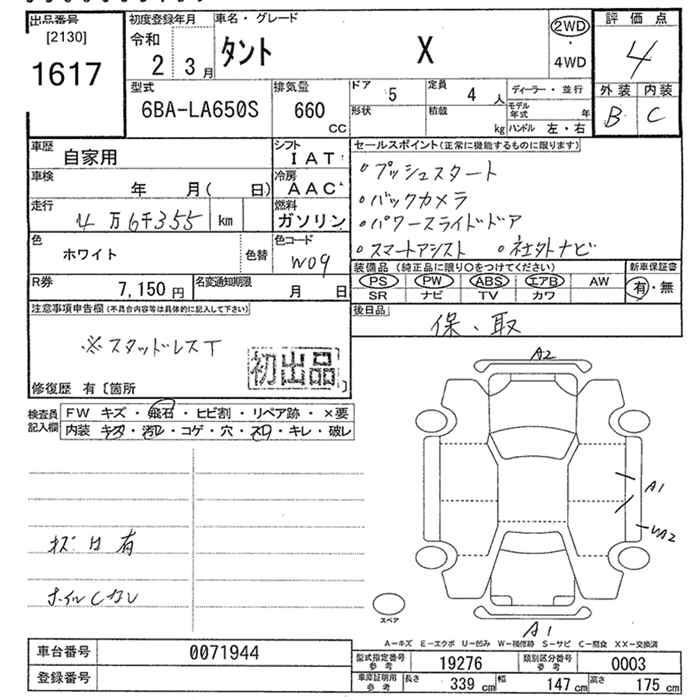 出品番号
[2130]
1617
初度登録年月
令和
2 3月
車名・グレード
タント X
2WD
・
4WD
評価点
4
外装 内装
B C
型式
6BA-LA650S
排気量
660
CC
ドア
5
定員
4人
形状
積載
kg
ディーラー・並行
モデル年式 年
ハンドル 左・右
車歴
自家用
シフト
IAT
車検
年 月( 日)
冷房
AAC
走行
4万6千355 km
燃料
ガソリン
色
ホワイト
色替
色コード
W09
R券
7,150円
名変通知期限
月 日
セールスポイント(正常に機能するものに限ります)
◦プッシュスタート
◦バックカメラ
◦パワースライドドア
◦スマートアシスト ◦社外ナビ
装備品(純正品に限り○をつけてください)
PS PW ABS エアB AW
SR ナビ TV カワ
新車保証書
有・無
後日品
保、取
注意事項申告欄(不具合内容等は具体的に記入して下さい)
※スタッドレスT
初出品
修復歴 有〔箇所 〕
検査員
記入欄
FW キズ・飛石・ヒビ割・リペア跡・×要
内装 キズ・汚レ・コゲ・穴・スレ・キレ・破レ
キズ凹有
ホイルCなし
A2
A1
A2
A1
スペア
A－キズ E－エクボ U－凹み W－補修跡 S－サビ C－腐食 XX－交換済
車台番号
0071944
登録番号
型式指定番号
参考
19276
類別区分番号
参考
0003
車庫証明用
参考
長さ 339cm 幅 147cm 高さ 175cm